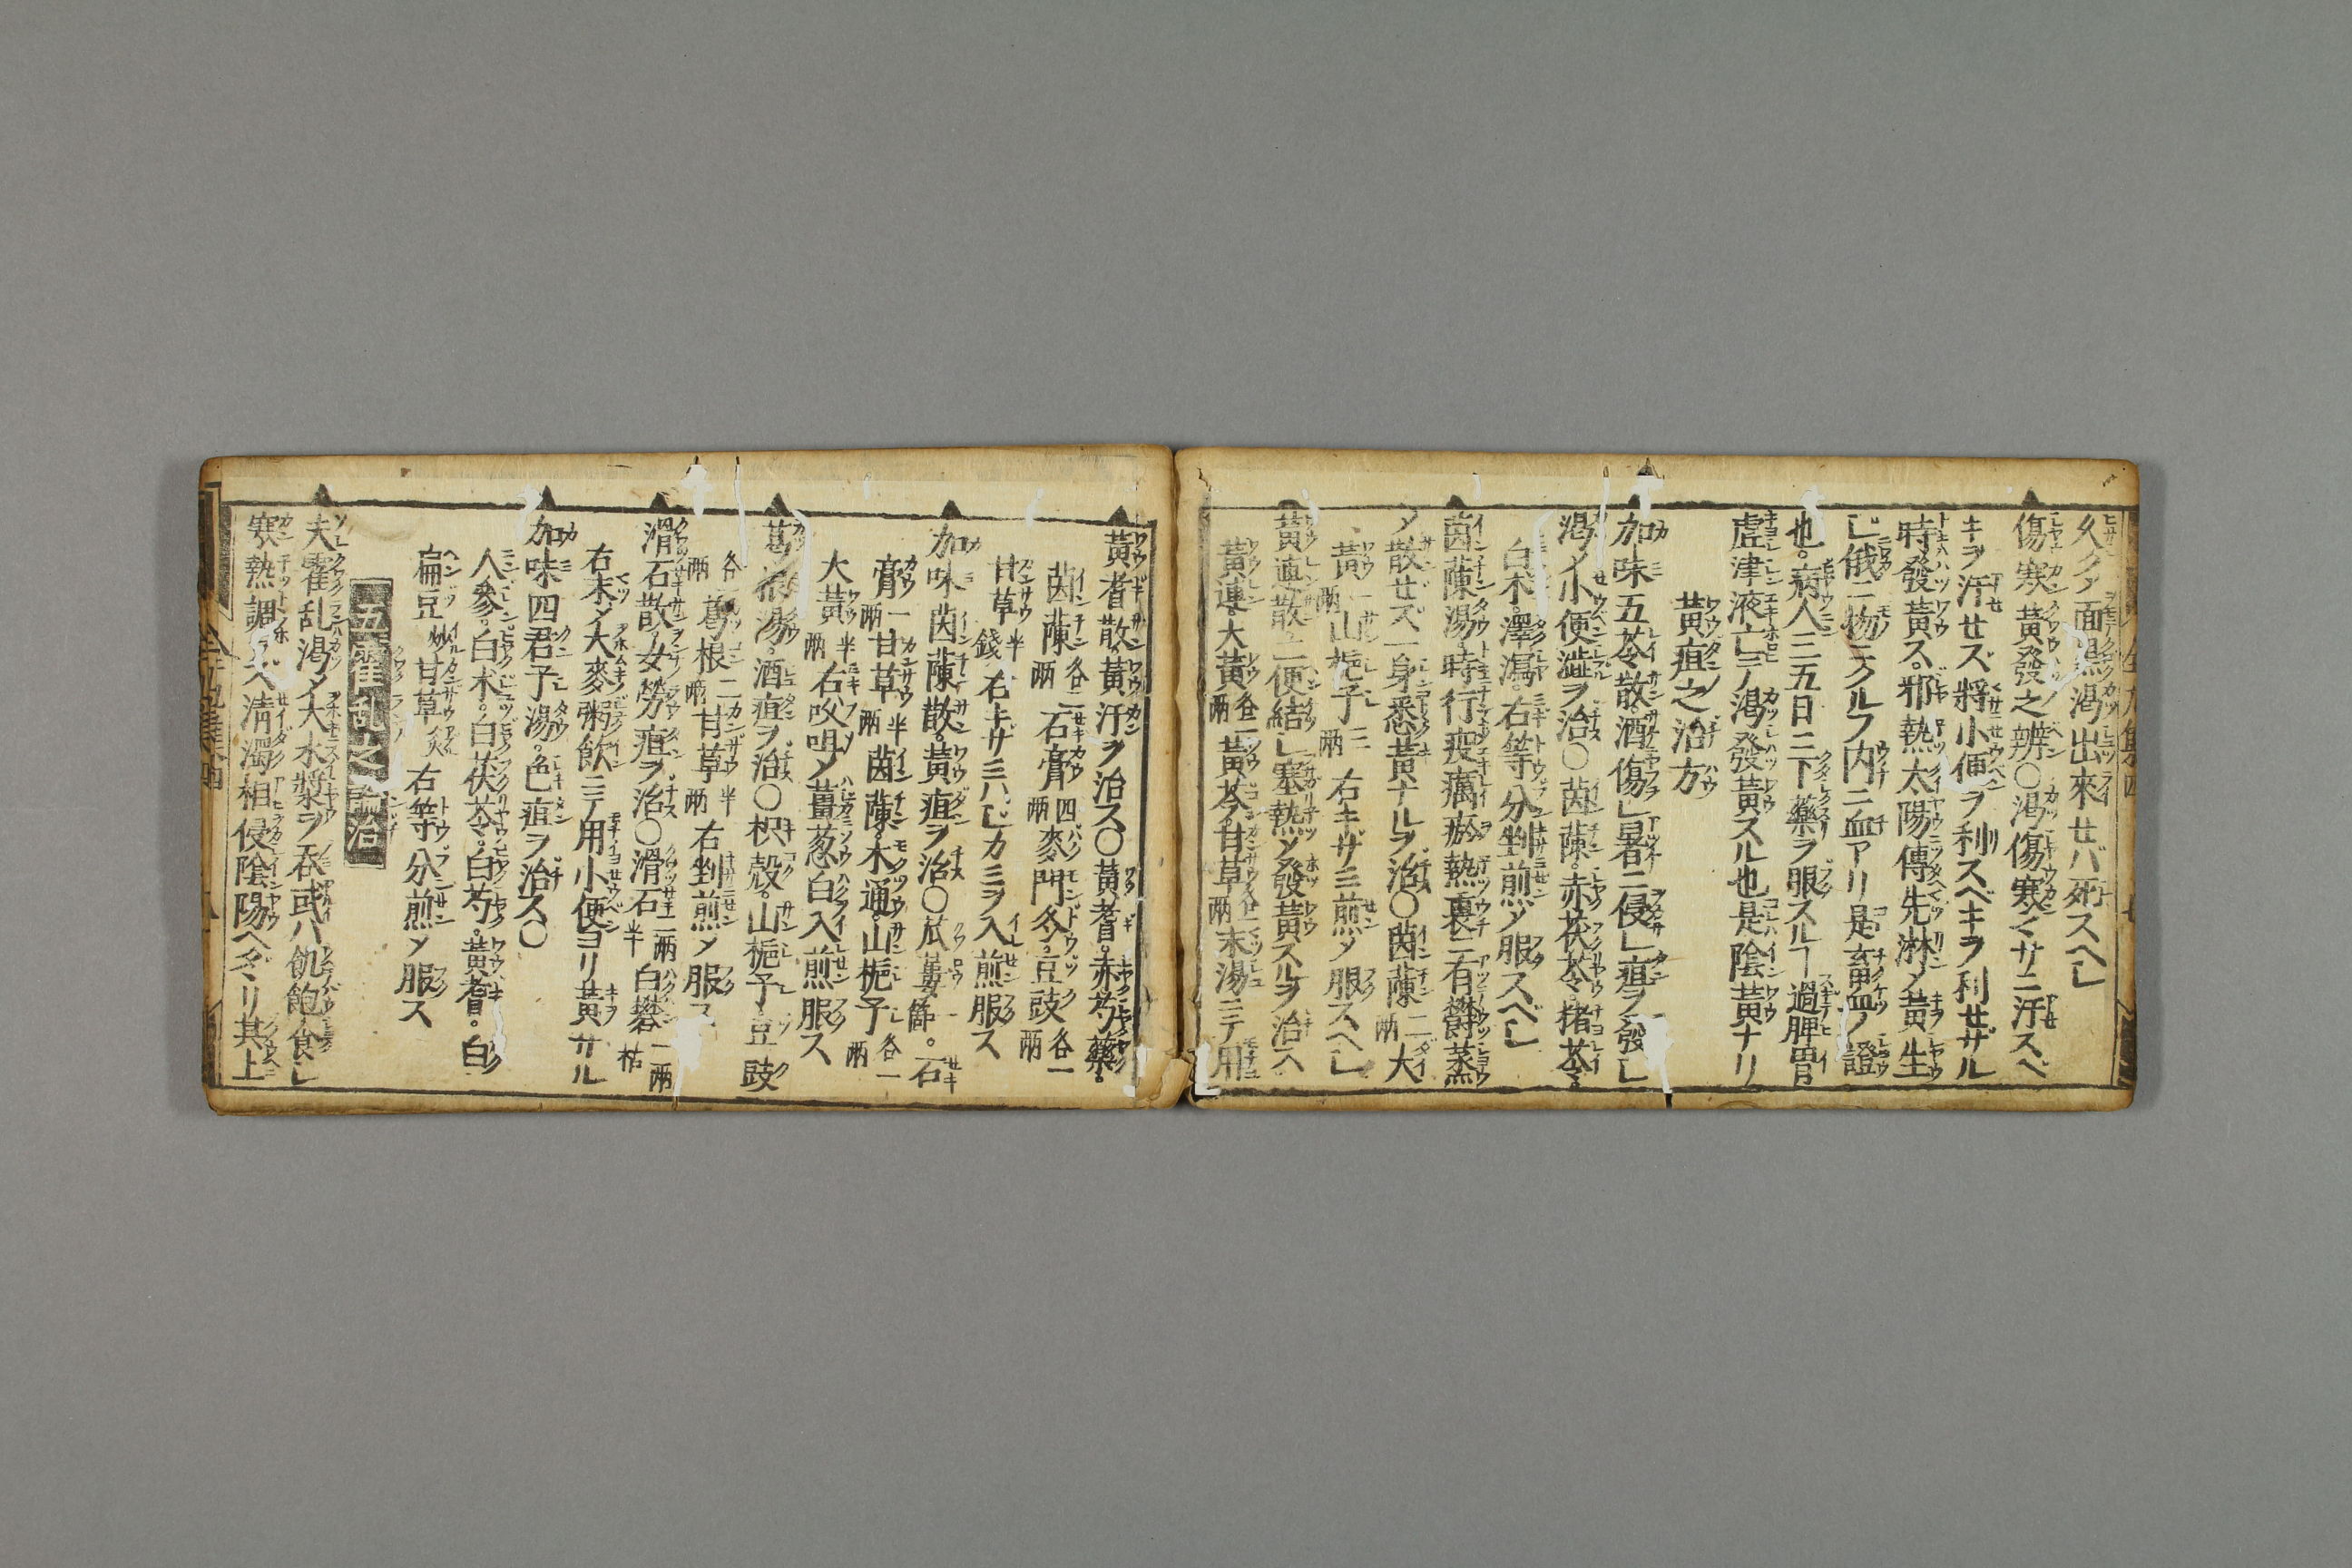 久クノ面黒渇出來せバ死スヘし
傷寒黄發之辨〇渇傷寒イマサニ汗スベ
キヲ汗せズ將小便ヲ利スベキヲ利せザル
時發黄ス。邪熱太陽傳先淋メ黄生
じ俄ニ物ニクルフ内ニ血アリ是畜血ノ證
也。病人三五日ニ下藥ヲ服スルヿ過脾胃
虚津液亡ニテ渇發黄スル也是陰黄ナリ
黄疸之治方
加味五苓散。酒傷し暑ニ侵し疸ヲ發し
渇メ小便澁ヲ治〇茵蔯。赤茯苓。猪苓。
白朮。澤瀉。右等分剉煎メ服スべし
茵蔯湯。時行疫癘瘀熱裏ニ有欝蒸
メ散せズ一身悉黄ナルヲ治〇茵蔯二兩大
黄一兩山梔子三兩右キザミ煎メ服スへし
黄連散。二便結し塞熱メ發黄スルヲ治ス
黄連大黄各二兩黄芩甘草各一兩末湯ニテ用
黄耆散。黄汗ヲ治ス〇黄耆。赤芍藥。
茵蔯各二兩石膏四兩麥門冬。豆豉各一兩
甘草半錢右キザミハじカミヲ入煎服ス
加味茵蔯散。黄疸ヲ治〇瓜蔞一箇。石
膏一兩甘草半兩茵蔯。木通。山梔子各一兩
大黄半兩右㕮咀メ薑葱白入煎服ス
葛根湯。酒疸ヲ治〇枳殻。山梔子豆豉
各一兩葛根二兩甘草半兩右剉煎メ服ス
滑石散。女勞疸ヲ治〇滑石二兩半白礬一兩枯
右末メ大麥粥飲ニテ用小便ヨリ黄サル
加味四君子湯。色疸ヲ治ス〇
人參。白朮。白茯苓。白芍。黄耆。白
扁豆炒甘草炙右等分煎メ服ス
五霍乱之論治
夫霍乱渇メ大水漿ヲ呑或ハ飢飽食し
寒熱調ヘズ清濁相侵陰陽ヘダヽリ其上